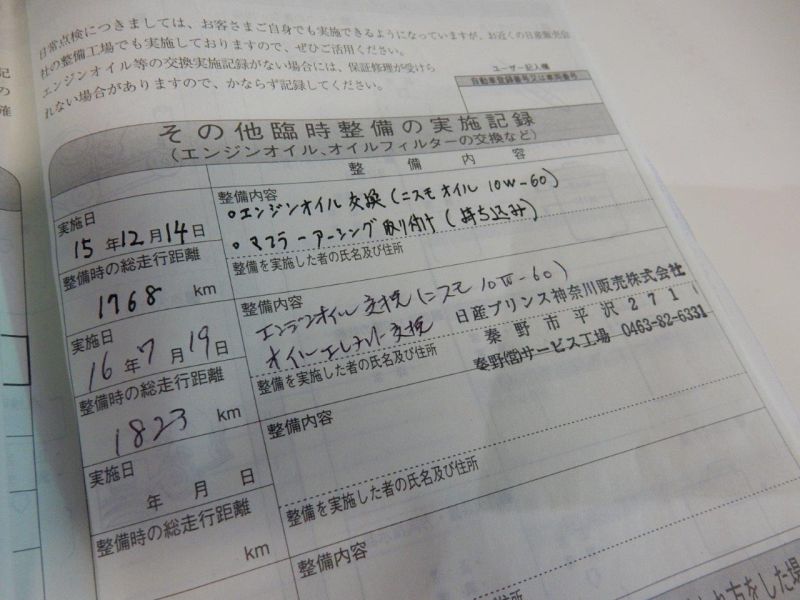 日常点検につきましては、お客さまご自身でも実施できるようになっていますが、お近くの日産販売会
社の整備工場でも実施しておりますので、ぜひご活用ください。
エンジンオイル等の交換実施記録がない場合には、保証修理が受けら
れない場合がありますので、かならず記録してください。
ユーザー記入欄
自動車登録番号又は車両番号
その他臨時整備の実施記録
(エンジンオイル、オイルフィルターの交換など)
整備内容
実施日
15年12月14日
整備内容
・エンジンオイル交換(ニスモオイル 10W-60)
・マフラーアーシング取り付け(持ち込み)
整備時の総走行距離
1768 km
整備を実施した者の氏名及び住所
実施日
16年7月19日
整備内容
エンジンオイル交換(ニスモ 10W-60)
オイルエレメント交換
整備時の総走行距離
1823 km
整備を実施した者の氏名及び住所
日産プリンス神奈川販売株式会社
秦野市平沢271
秦野サービス工場 0463-82-6331
実施日
年 月 日
整備内容
整備時の総走行距離
km
整備を実施した者の氏名及び住所
整備内容
方をした場